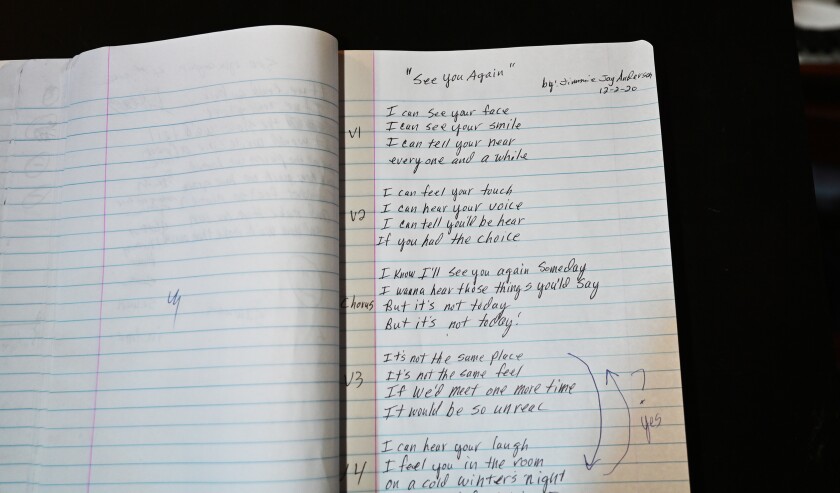 "See You Again"
by: Jimmie Jay Anderson
12-2-20
V1
I can see your face
I can see your smile
I can tell your near
every one and a while
V2
I can feel your touch
I can hear your voice
I can tell you'll be hear
If you had the choice
Chorus
I know I'll see you again Someday
I wanna hear those things you'ld say
But it's not today
But it's not today!
V3
It's not the same place
It's not the same feel
If We'd meet one more time
It would be so unreal
?
yes
V4
I can hear your laugh
I feel you in the room
on a cold winters night